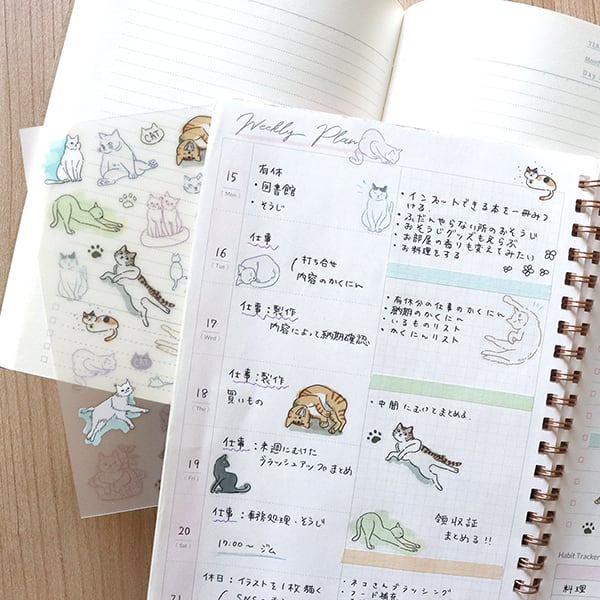 YEA
Mont
Day
CAT
Weekly Plan
15
(Mon)
有休
・図書館
・そうじ
・インプットできる本を一冊みつ
ける。
・ふだんやらない所のおそうじ
・おそうじグッズもえらぶ
・お部屋の香りも変えてみたい
・お料理をする
16
(Tue)
仕事
打ち合せ
内容のかくにん
17
(Wed)
仕事：製作
内容によって納期確認
・有休分の仕事のかくにん
・納期のかくにん
・いるものリスト
・かくにんリスト
18
(Thu)
仕事：製作
買いもの
・中間にむけてまとめる。
19
(Fri)
仕事：来週にむけた
ブラッシュアップまとめ
20
(Sat)
仕事：事務処理、そうじ
17:00〜 ジム
領収証
まとめる!!
21
休日：イラストを1枚描く
・ネコさんブラッシング
・フード補充
Habit Tracker
料理